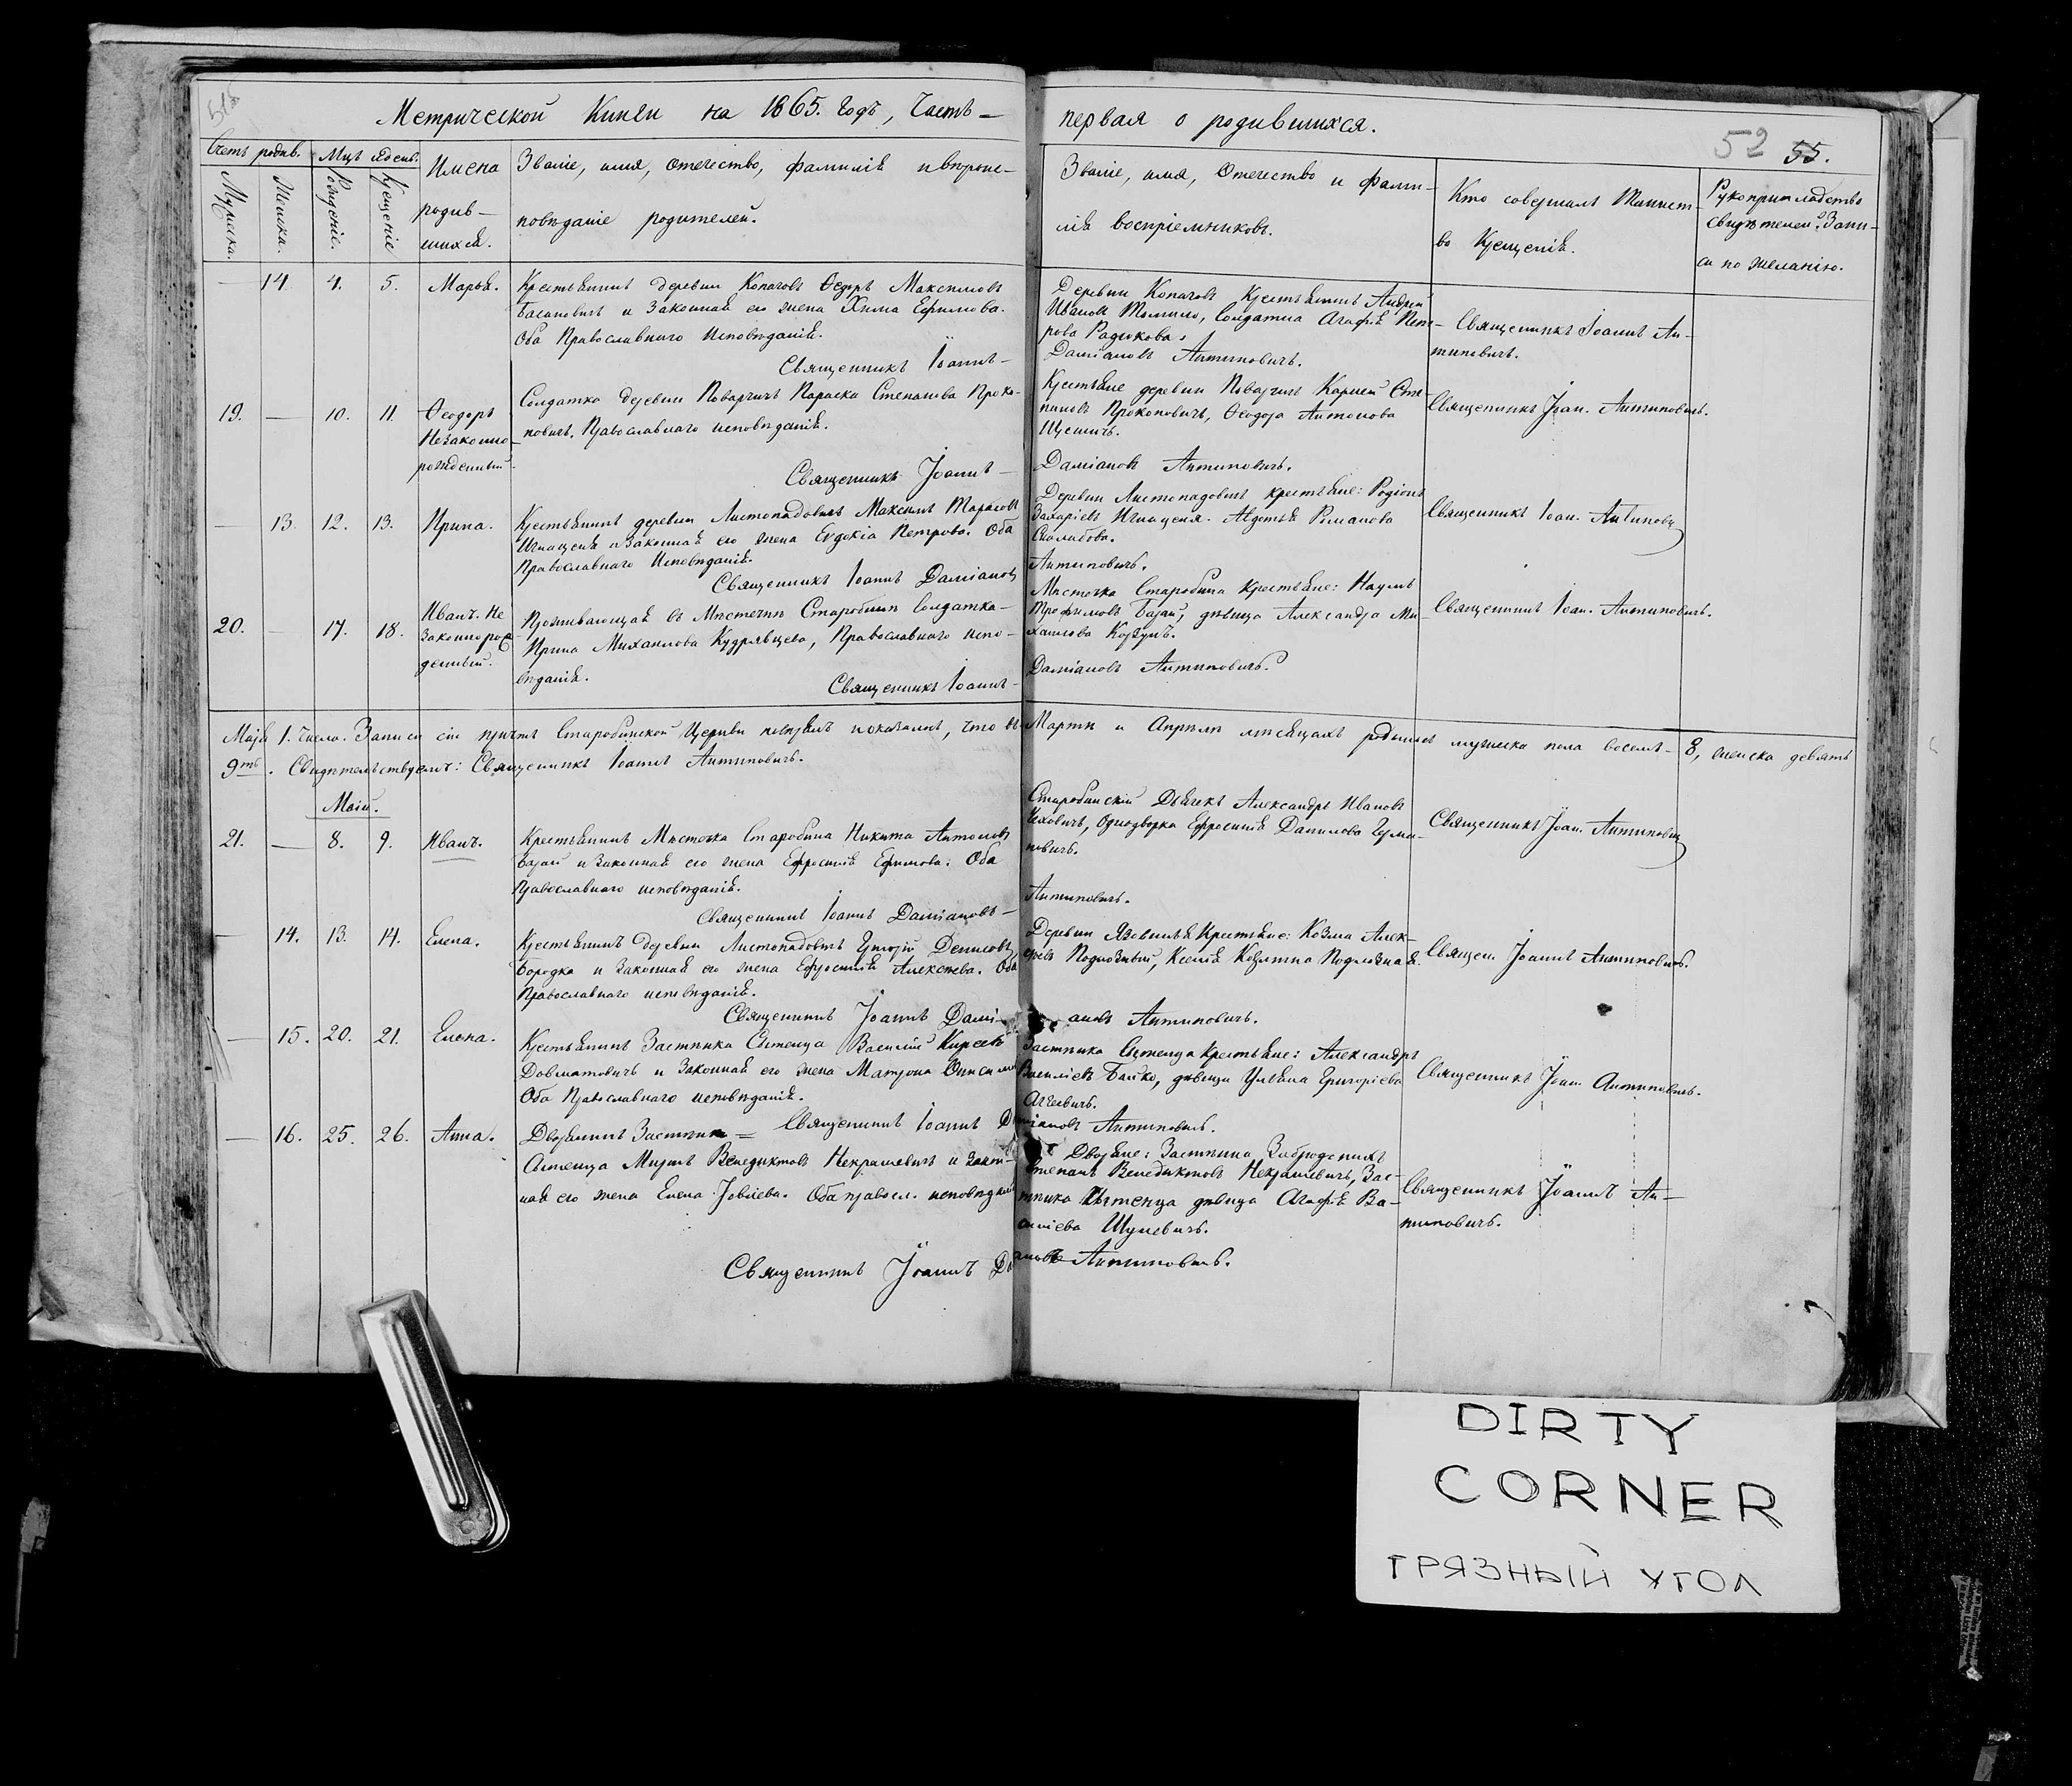 51об
Метрической Книги на 1865. Годъ, Часть —
первая о родившихся.
52 55.
Счетъ родив.
Мужеска.
Женска.
Мцъ и день.
Рожденіе.
Крещеніе
Имена
родив—
шихся.
Званіе, имя, отечество, фамилія и вѣроис—
повѣданіе родителей.
Званіе, имя, Отечество и фами—
лія воспріемниковъ.
Кто совершалъ Таинст—
во Крещенія.
Рукоприкладство
свидѣтелей Запи—
си по желанію.
— 14. 4. 5. Марья.
Крестьянинъ деревни Копачовъ Ѳедоръ Максимовъ
Басановичъ и Законная его жена Хима Ефимова.
Оба Православнаго Исповѣданія.
Священникъ Іоаннъ —
Деревни Копачовъ Крестьянинъ Андрей
Ивановъ Томило, Солдатка Агафія Пет—
рова Радюкова.
Даміановъ Антиповичъ.
Священникъ Іоаннъ Ан—
типовичъ.
19. — 10. 11. Ѳеодоръ
Незаконно—
рожденный.
Солдатка деревни Поварчичъ Параска Степанова Проко—
повичъ, Православнаго исповѣданія.
Священникъ Іоаннъ —
Крестьяне деревни Поварчичъ Карней Сте
пановъ Прокоповичъ, Ѳеодора Антонова
Даміановъ Антиповичъ.
Священникъ Іоан. Антиповичъ.
— 13. 12. 13. Ирина.
Крестьянинъ деревни Листопадовичъ Максимъ Тарасовъ
Игнаценя и Законная его жена Евдокіа Петрова. Оба
Православнаго Исповѣданія.
Священникъ Іоаннъ Даміановъ
Деревни Листопадовичъ крестьяне: Родіонъ
Захаріевъ Игнаценя. Авдотья Романова
Антиповичъ.
Священникъ Іоан. Антиповичъ
20. — 17. 18. Иванъ. Не
законнорож
денный.
Проживающая въ Мѣстечкѣ Старобинѣ Солдатка—
Ирина Михаилова Кудрявцева, Православнаго испо—
вѣданія.
Священникъ Іоаннъ —
Мѣстечка Старобина Крестьяне: Наумъ
Трофимовъ Баган, дѣвица Александра Ми—
хаилова Корзунъ.
Даміановъ Антиповичъ.
Священникъ Іоан. Антиповичъ.
Маія 1. числа. Записи сіи причтъ Старобинской Церкви повѣрялъ показалиъ, что въ Мартѣ и Апрѣлѣ мѣсяцахъ родилось мужеска пола восемь — 8, женска девять
9ть. Свидѣтельствуемъ: Священникъ Іоаннъ Антиповичъ.
Маій.
21. — 8. 9. Иванъ.
Крестьянинъ Мѣстечка Старобина Никита Антоновъ
и Законная его жена Ефросинія Ефимова. Оба
Православнаго исповѣданія.
Священникъ Іоаннъ Даміановъ —
Старобинскій Дьячекъ Александръ Ивановъ
Однодворка Ефросинія Данилова
Антиповичъ.
Священникъ Іоан. Антиповичъ
— 14. 13. 14. Елена.
Крестьянинъ деревни Листопадовичъ Григорій Денисовъ
Бородка и Законная его жена Ефросинія Алексѣева. Оба
Православнаго исповѣданія.
Священникъ Іоаннъ Дамі—
Деревни Крестьяне: Козма Алек—
сѣевъ Подлозный, Ксенія Козмина Подлозная.
ановъ Антиповичъ.
Священ. Іоаннъ Антиповичъ.
— 15. 20. 21. Елена.
Крестьянинъ Застѣнка Сѣтенца Василій Киреевъ
Довматовичъ и Законная его жена Матрона
Оба Православнаго исповѣданія.
Священникъ Іоаннъ Даміановъ Антиповичъ.
Застѣнка Сѣтенца Крестьяне: Александръ
Василіевъ Бойко, дѣвица Уліяна Григоріева
Агеевичъ.
Священникъ Іоан. Антиповичъ.
— 16. 25. 26. Анна.
Дворянинъ Застѣнка —
Сѣтенца Миронъ Венедиктовъ Некрашевичъ и закон—
ная его жена Елена Іовліева. Оба правосл. исповѣданія
Священникъ Іоаннъ Да
Дворяне: Застѣнка Заброденихъ
Степанъ Венедиктовъ Некрашевичъ, Зас—
тѣнка Сѣтенца дѣвица Агафія Ва—
силіева Шулевичъ.
ановъ Антиповичъ.
Священникъ Іоаннъ Ан—
типовичъ.
DIRTY
CORNER
ГРЯЗНЫЙ УГОЛ